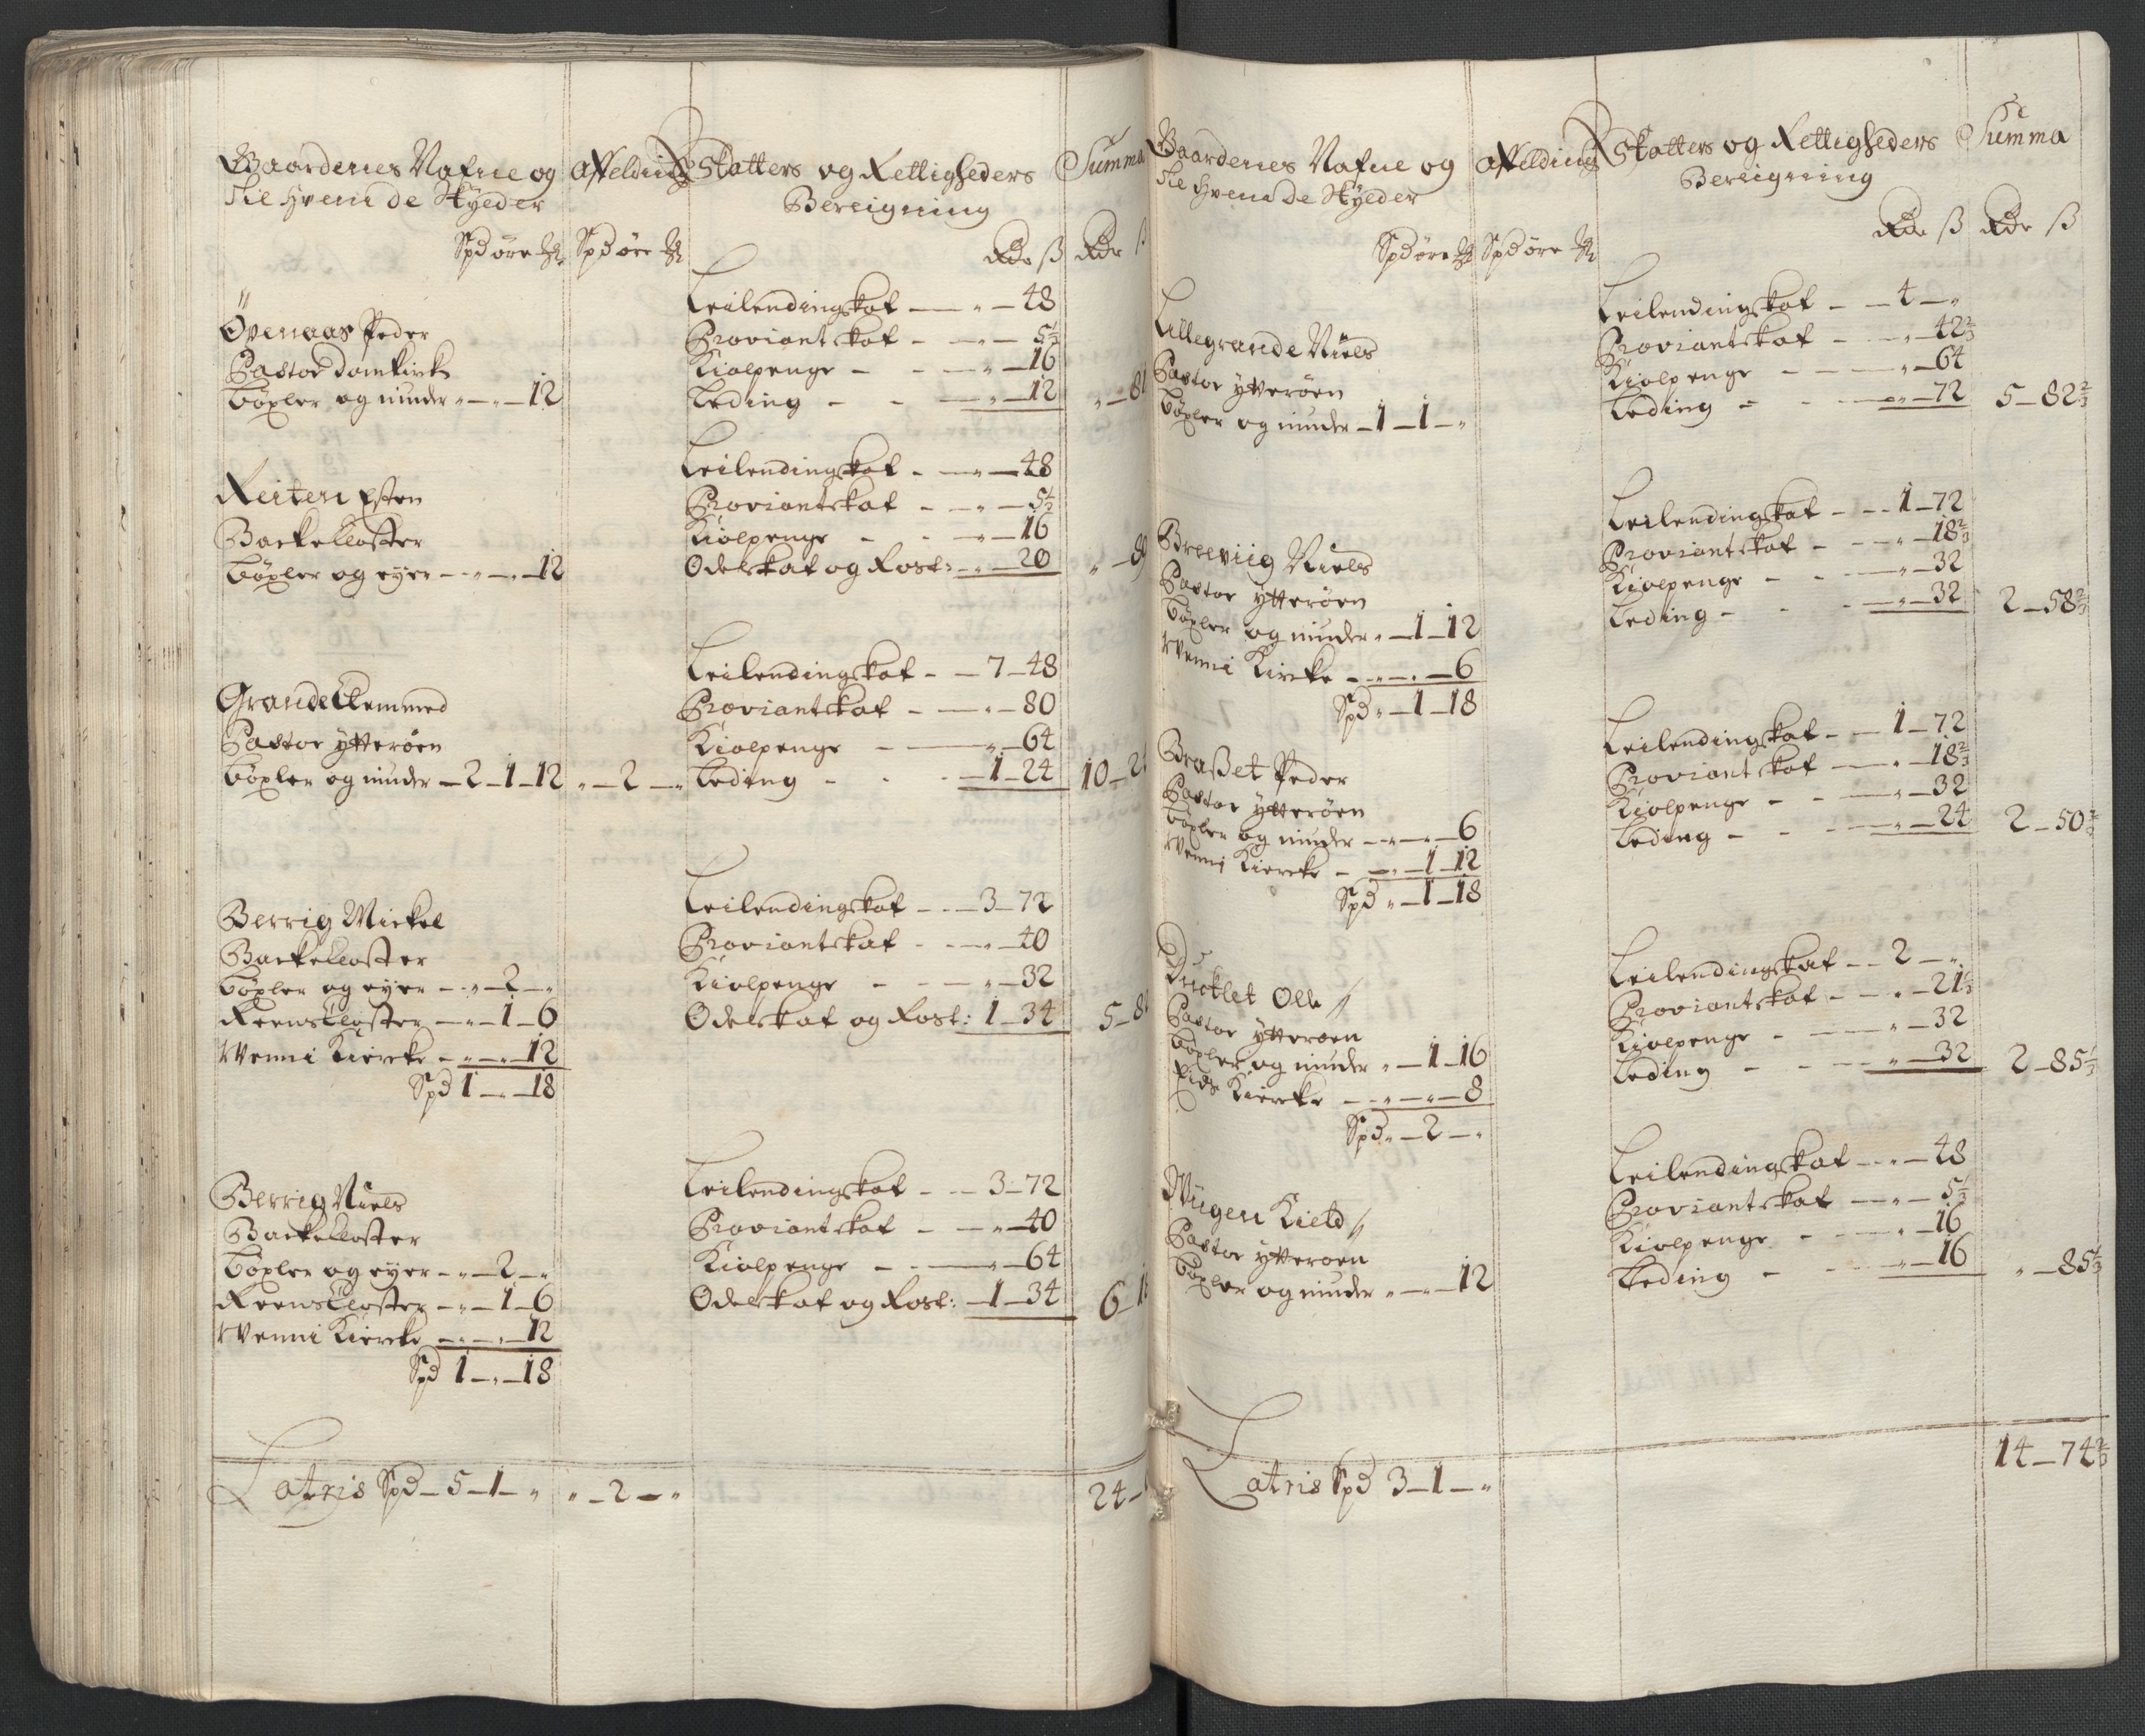 Gaardenes Nafne og
Til hvem de Skylder
Affelding
Skatters og Rettigheders
Bereigning
Summa
Spd öre
Spd öre
Rdr ß
Rdr ß
Övenaas Peder
Pastor Domkirke
böxler og minder „ — „ — 12
Leilendingskat — „ — 48
Proviantskat — „ — 5⅓
Kiolpenge — „ — 16
Leding — „ — 12
„ — 81
Reiten Esten
Backecloster
böxler og eyer — „ — „ — 12
Leilendingskat — „ — 48
Proviantskat — „ — 5⅓
Kiolpenge — „ — 16
Odelskat og Rost: — „ — 20
„ — 89
Grande Clemmed
Pastor ytterøen
böxler og minder — 2 — 1 — 12
„ — 2 — „
Leilendingskat — 7 — 48
Proviantskat — „ — 80
Kiolpenge — „ — 64
Leding — 1 — 24
10 — 2
Berrig Mickel
Backecloster
böxler og eyer — „ — 2 — „
Reensecloster — „ — 1 — 6
Wenni Kiercke — „ — „ — 12
Spd 1 — „ — 18
Leilendingskat — 3 — 72
Proviantskat — „ — 40
Kiolpenge — „ — 32
Odelskat og Rost: 1 — 34
5 — 8
Berrig Niels
Backecloster
böxler og eyer — „ — 2 — „
Reensecloster — „ — 1 — 6
Wenni Kiercke — „ — „ — 12
Spd 1 — „ — 18
Leilendingskat — 3 — 72
Proviantskat — „ — 40
Kiolpenge — „ — 64
Odelskat og Rost: — 1 — 34
6 — 1
Latris Spd — 5 — 1 — „
„ — 2 — „
24 —
Gaardenes Nafne og
Til hvem de Skylder
Affelding
Skatters og Rettigheders
Bereigning
Summa
Spd öre
Spd öre
Rdr ß
Rdr ß
Lillegrande Niels
Pastor ytterøen
böxler og minder — 1 — 1 — „
Leilendingskat — 4 — „
Proviantskat — „ — 42⅔
Kiolpenge — „ — 64
Leding — „ — 72
5 — 82⅔
Breeviig Niels
Pastor ytterøen
böxler og minder „ — 1 — 12
Wenni Kircke — „ — „ — 6
Spd „ — 1 — 18
Leilendingskat — 1 — 72
Proviantskat — „ — 18⅔
Kiolpenge — „ — 32
Leding — „ — 32
2 — 58⅔
Braßet Peder
Pastor ytterøen
böxler og minder — „ — „ — 6
Wenni Kiercke — „ — 1 — 12
Spd „ — 1 — 18
Leilendingskat — 1 — 72
Proviantskat — „ — 18⅔
Kiolpenge — „ — 32
Leding — „ — 24
2 — 50⅔
Olle
Pastor ytteroen
böxler og minder „ — 1 — 16
Eids Kiercke — „ — „ — 8
Spd „ — 2 — „
Leilendingskat — 2 — „
Proviantskat — „ — 21⅓
Kiolpenge — „ — 32
Leding — „ — 32
2 — 85⅓
Wiigen Kield
Pastor ytteroen
böxler og minder „ — „ — 12
Leilendingskat — „ — 48
Proviantskat — „ — 5⅓
Kiolpenge — „ — 16
Leding — „ — 16
„ — 85⅓
Latris Spd 3 — 1 — „
14 — 74⅔